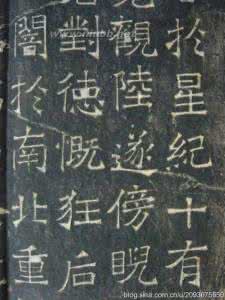 於星紀十有
觀陸遂傍睨
對德慨狂后
闇於南北重
blog.sina.com.cn/u/2093075650